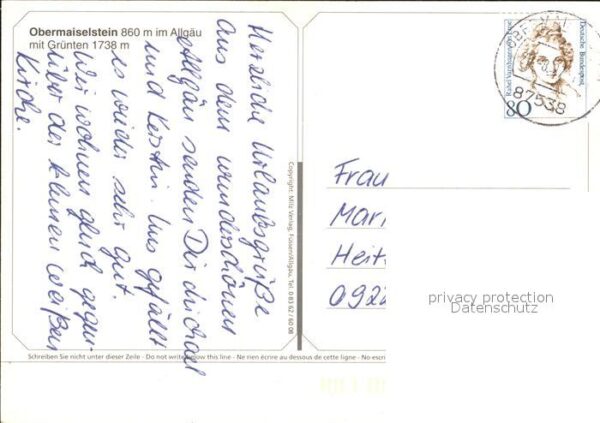 Obermaiselstein 860 m im Allgäu
mit Grünten 1738 m
Herzliche Urlaubsgrüße
aus dem wunderschönen
Allgäu senden Dir Michael
und Kerstin. Uns gefällt
es wieder sehr gut.
Wir wohnen gleich gegen-
über der kleinen weißen
Kirche.
Copyright: Milz Verlag, Füssen/Allgäu, Tel. 0 83 62 / 60 08
Deutsche Bundespost
80
87538
Frau
Mari
Heit
092
privacy protection
Datenschutz
Schreiben Sie nicht unter dieser Zeile - Do not write below this line - Ne rien écrire au dessous de cette ligne - No escri